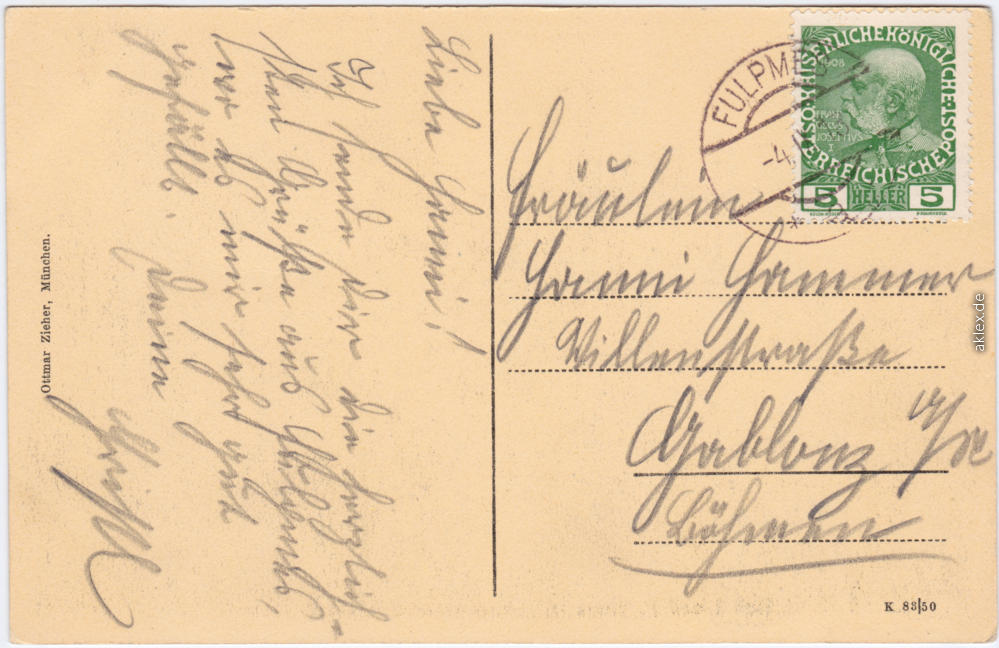 Liebe Hanni!
Ich sende Dir die herzlich-
sten Grüße aus Fulpmes,
wo es mir sehr gut
gefällt. Deine
Ottmar Zieher, München.
FULPMES
-4.
KAISERLICHE KÖNIGLICHE
ÖSTERREICHISCHE POST
1908
FRAN
CISCVS
IOSEPHVS
I
5 HELLER 5
Fräulein
Hanni Hammer
Villenstraße
Gablonz
Böhmen
K 83/50
aklex.de